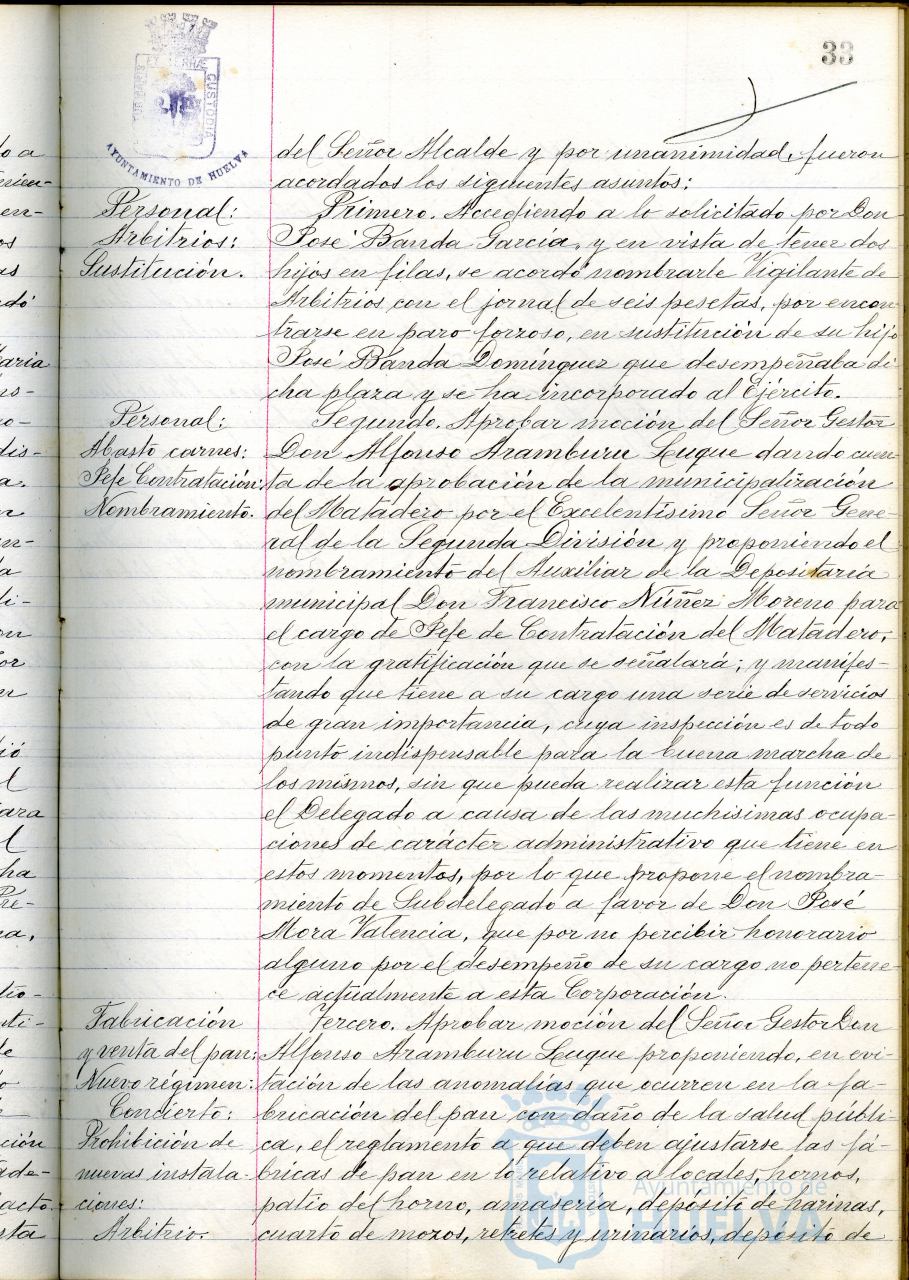 33
PORTUS MARIS ET TERRAE CUSTODIA
AYUNTAMIENTO DE HUELVA
del Señor Alcalde y por unanimidad, fueron
acordados los siguientes asuntos:
Personal:
Arbitrios:
Sustitución.
Primero. Accediendo a lo solicitado por Don
José Banda García, y en vista de tener dos
hijos en filas, se acordó nombrarle Vigilante de
Arbitrios con el jornal de seis pesetas, por encon-
trarse en paro forzoso, en sustitución de su hijo
José Banda Domínguez que desempeñaba di-
cha plaza y se ha incorporado al Ejército.
Personal:
Abasto carnes:
Jefe Contratación:
Nombramiento.
Segundo. Aprobar moción del Señor Gestor
Don Alfonso Aramburu Luque dando cuen-
ta de la aprobación de la municipalización
del Matadero por el Excelentísimo Señor Gene-
ral de la Segunda División y proponiendo el
nombramiento del Auxiliar de la Depositaría
municipal Don Francisco Núñez Moreno para
el cargo de Jefe de Contratación del Matadero,
con la gratificación que se señalará; y manifes-
tando que tiene a su cargo una serie de servicios
de gran importancia, cuya inspección es de todo
punto indispensable para la buena marcha de
los mismos, sin que pueda realizar esta función
el Delegado a causa de las muchísimas ocupa-
ciones de carácter administrativo que tiene en
estos momentos, por lo que propone el nombra-
miento de Subdelegado a favor de Don José
Mora Valencia, que por no percibir honorario
alguno por el desempeño de su cargo no pertene-
ce actualmente a esta Corporación.
Fabricación
y venta del pan:
Nuevo régimen:
Concierto:
Prohibición de
nuevas instala-
ciones:
Arbitrio.
Tercero. Aprobar moción del Señor Gestor Don
Alfonso Aramburu Luque proponiendo, en evi-
tación de las anomalías que ocurren en la fa-
bricación del pan con daño de la salud públi-
ca, el reglamento a que deben ajustarse las fá-
bricas de pan en lo relativo a locales, hornos,
patio del horno, amasería, depósito de harinas,
cuarto de mozos, retretes y urinarios, depósito de
Ayuntamiento de
HUELVA